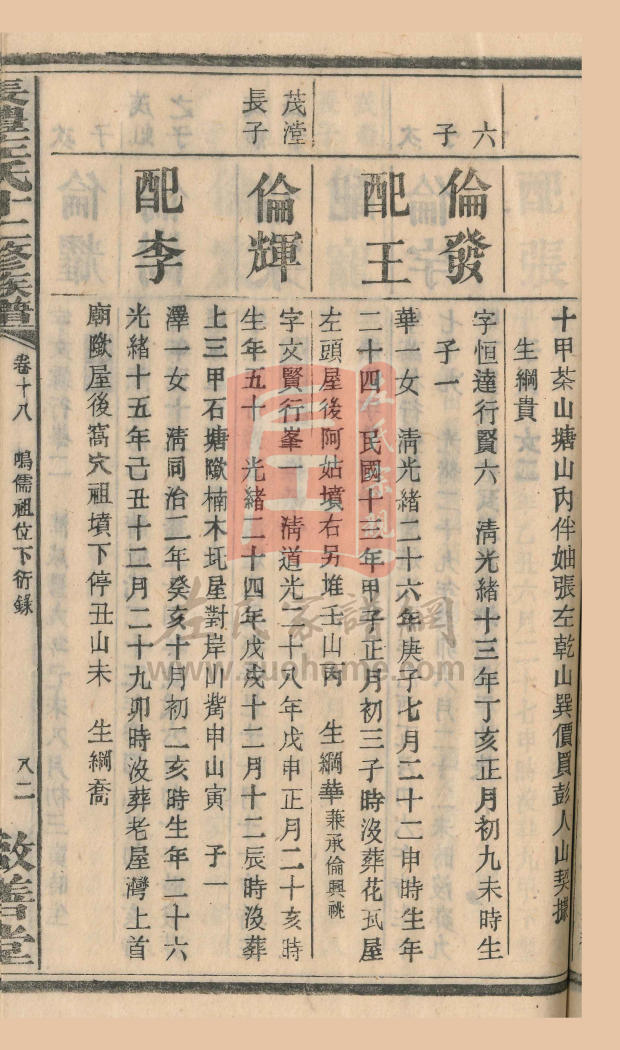 十甲茶山塘山內伴妯張左乾山巽價買彭人山契據
生綱貴
六
子
倫發
字恒達行賢六 清光緒十三年丁亥正月初九未時生
子一
配王
華一女 清光緒二十六年庚子七月二十二申時生年
二十四 民國十三年甲子正月初三子時沒葬花瓦屋
左頭屋後阿姑墳右另堆壬山丙 生綱華兼承倫興祧
茂瀅
長子
倫輝
字文賢行峯一 清道光二十八年戊申正月二十亥時
生年五十 光緒二十四年戊戌十二月十二辰時沒葬
上三甲石塘墈楠木坑屋對岸山嘴申山寅 子一
配李
澤一女 清同治二年癸亥十月初二亥時生年二十六
光緒十五年己丑十二月二十九卯時沒葬老屋灣上首
廟墈屋後窩穴祖墳下停丑山未 生綱喬
左氏十二修族譜
卷十八 鳴儒祖位下衍錄
八二
敦善堂
左氏家譜網
www.zuohome.com